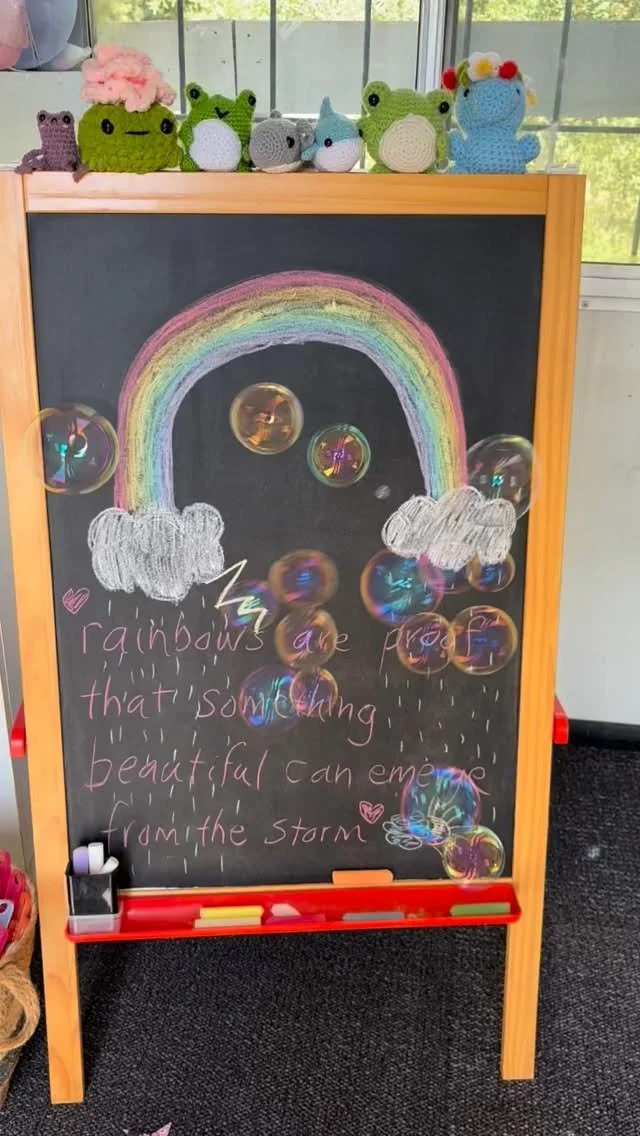 rainbows are proof
that something
beautiful can emerge
from the storm